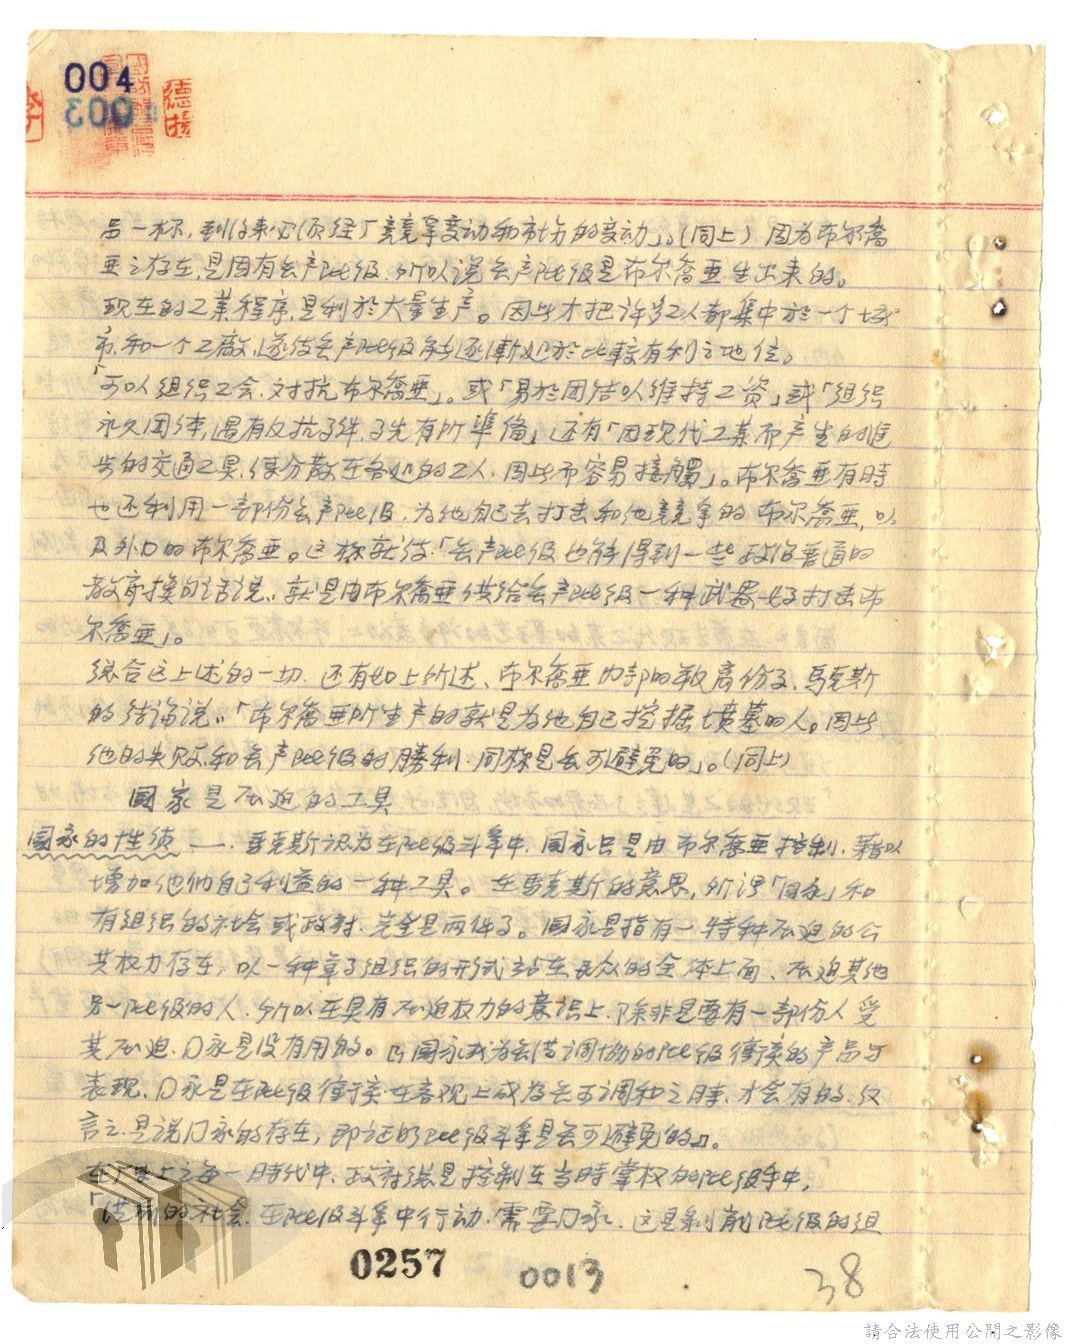 004
003
德揚
李
品一樣,到後來必須经「競爭变动和市场的变动」。(同上)因为布尔喬
亚之存在,是因有无产阶级,所以说无产阶级是布尔喬亚生出来的。
现在的工業程序,是利於大量生产。因此才把许多工人都集中於一个城
市,和一个工廠,遂使无产阶级能逐漸处於比較有利之地位。
「可以组织工会,对抗布尔喬亚」。或「易於团结以维持工资」或「组织
永久团体,遇有反抗事件,事先有所準備」还有「因现代工業而产生的進
步的交通工具,使分散在各处的工人,因此而容易接觸」。布尔喬亚有時
也还利用一部份无产阶级,为他自己去打击和他競爭的布尔喬亚,以
及外囗的布尔喬亚。这樣就使「无产阶级也能得到一些政治普通的
教育換句话说,就是由布尔喬亚供给无产阶级一种武器好打击布
尔喬亚」。
综合这上述的一切,还有如上所述、布尔喬亚内部的敵离份子,馬克斯
的结論说,「布尔喬亚所生产的就是为他自己挖掘墳墓的人。因此
他的失败,和无产阶级的勝利,同樣是无可避免的」。(同上)
国家是压迫的工具
国家的性质 —.馬克斯认为在阶级斗争中,国家只是由布尔喬亚控制,藉以
增加他们自己利益的一种工具。在馬克斯的意思,所谓「国家」和
有组织的社会或政府,完全是两件事。国家是指有一特种压迫的公
共权力存在,以一种軍事组织的形式站在民众的全体上面、压迫其他
另一阶级的人,所以在具有压迫权力的意识上,除非是要有一部份人受
其压迫,囗家是没有用的。「国家我为无法调协的阶级衝突的产品与
表现,囗家是在阶级衝突在客观上成为无可调和之時,才会有的,反
言之,是说囗家的存在,即证明阶级斗争是无可避免的」。
在历史上之每一時代中,政府總是控制在当時掌权的阶级手中,
的社会,在阶级斗争中行动,需要囗家,这是剥削阶级的组
0257
0013
38
請合法使用公開之影像